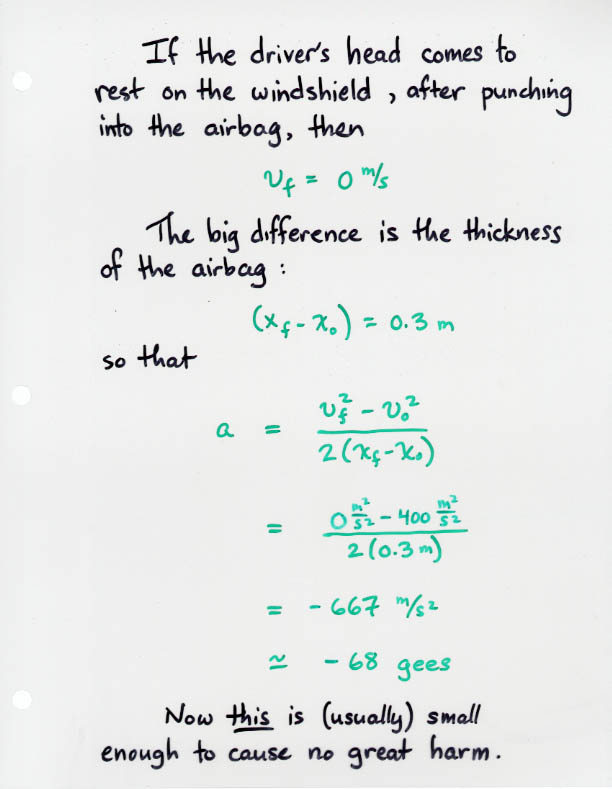 If the driver's head comes to
rest on the windshield, after punching
into the airbag, then
v_f = 0 m/s
The big difference is the thickness
of the airbag :
(x_f - x_0) = 0.3 m
so that
a = (v_f² - v_0²) / (2(x_f - x_0))
= (0 m²/s² - 400 m²/s²) / (2(0.3 m))
= -667 m/s²
≃ -68 gees
Now this is (usually) small
enough to cause no great harm.